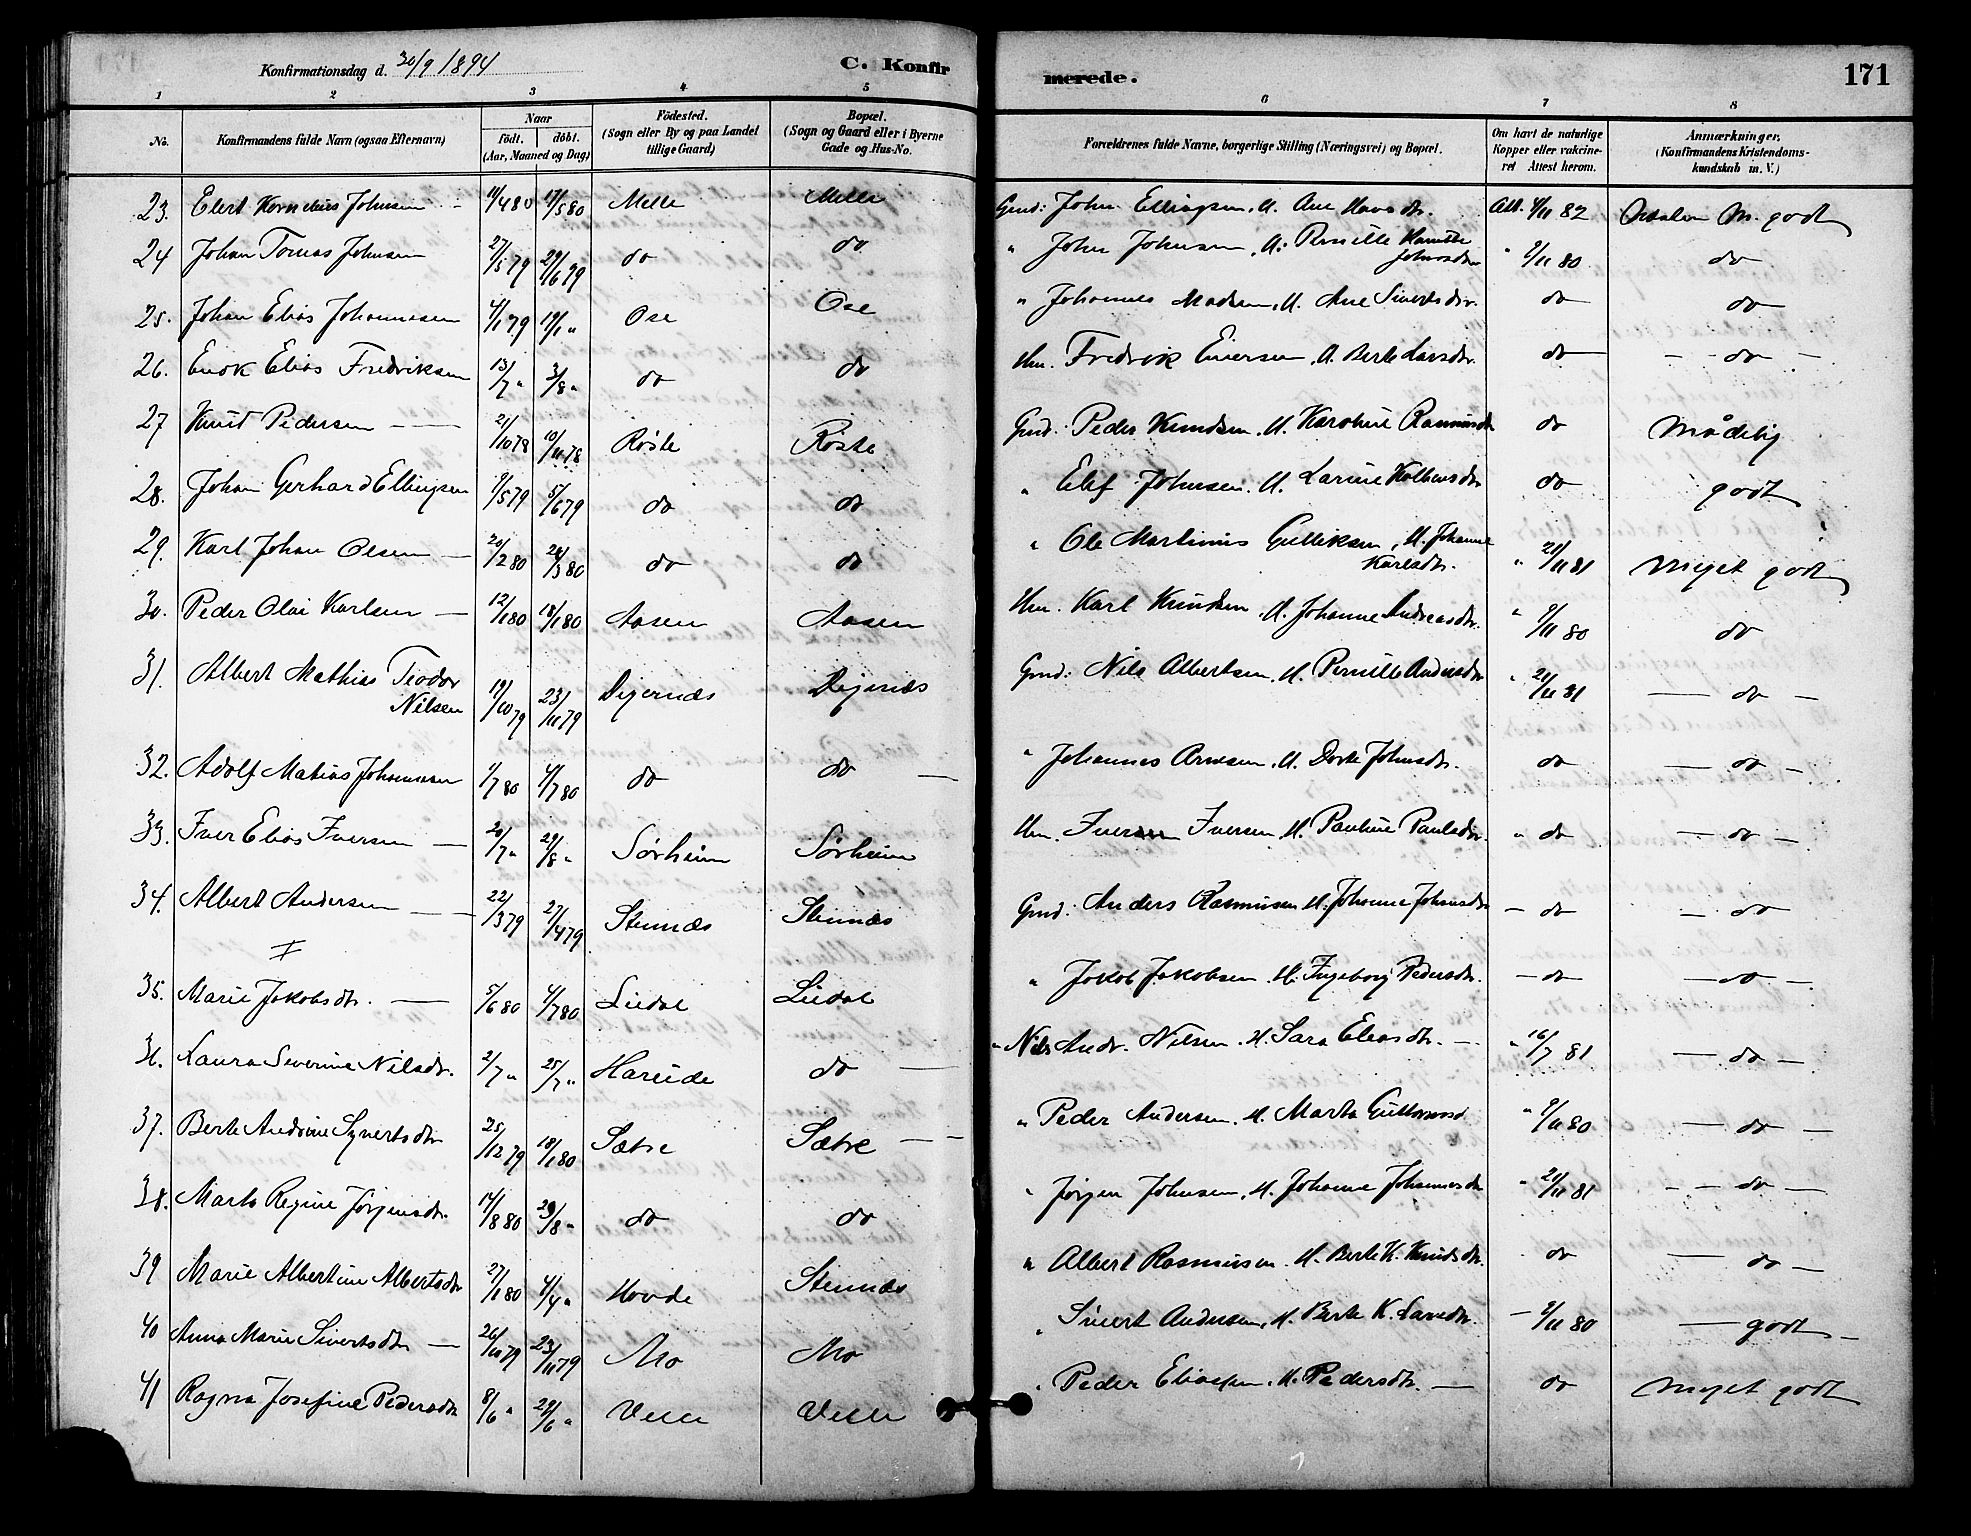 Konfirmationsdag d. 30/9 1894
C. Konfir merede. 171
1 2 3 4 5 6 7 8
No. Konfirmandens fulde Navn (ogsaa Efternavn) Naar födt. döbt. (Aar, Maaned og Dag) Födested. (Sogn eller By og paa Landet tillige Gaard) Bopæl. (Sogn og Gaard eller i Byerne Gade og Hus-No. Forældrenes fulde Navne, borgerlige Stilling (Næringsvei) og Bopæl. Om havt de naturlige Kopper eller vakcineret Attest herom. Anmærkninger. (Konfirmandens Kristendomskundskab m. V.)
23. Elert Kornelius Johnsen 11/4 80 17/5 80 Melle Melle Gmd: John Ellingsen. M. Ane Hansdtr. Att. 82 m. godt
24 Johan Tomas Johnsen 27/5 79 29/6 79 do do " John Johnsen, M. Pernille Johnsdtr " 9/11 80 do
25. Johan Elias Johannesen 4/1 79 19/1 " Ose Ose " Johannes Madsen, M. Ane Sivertsdtr. do do
26. Enok Elias Fredriksen 13/7 " 3/8 " do do Hm. Fredrik Eliersen, M. Berte Larsdtr. do do
27 Knut Pedersen 21/10 78 10/11 78 Röste Röste Gmd. Peder Knudsen. M. Karoline Rasmusdtr do Mådelig
28. Johan Gerhard Ellingsen 9/5 79 5/6 79 do do " Johnsen. M. Larine dtr do godt
29. Karl Johan Olsen 20/2 80 28/3 80 do do " Ole Martinus Gulliksen, M. Johanne Karlsdtr. " 21/11 81 meget godt
30. Peder Olai Karlsen 12/1 80 18/1 80 Aasen Aasen Hm. Karl Knudsen, M. Johanne Andreasdtr. " 9/11 80 do
31. Albert Mathias Teodor Nilsen 19/10 79 23/11 79 Digernæs Digernæs Gmd: Nils Albertsen, M. Pernille Andersdtr " 21/11 81 do
32. Adolf Matias Johannesen 1/7 80 4/7 80 do do " Johannes Arnesen, M. Dorte Johnsdtr. do do
33. Iver Elias Iversen 20/7 " 29/8 " Sörheim Sörheim Hm. Iver Iversen. M. Pauline Paulsdtr. " do do
34. Albert Andersen 22/3 79 27/4 79 Stennæs Stennæs Gmd: Anders Rasmusen M. Johanne Johansdtr do do
35. Marie Jakobsdtr. 5/6 80 4/7 80 Liedal Liedal " Jakob Jakobsen. M. Ingeborg Pedersdtr. do do
36. Laura Severine Nilsdtr. 2/7 " 25/7 " Hareide do " Nils Andr. Nilsen. M. Sara Eliasdtr. " 16/7 81 do
37. Berte Andrine Syvertsdtr 25/12 79 18/1 80 Sætre Sætre " Peder Andersen. M. Marta Guttormsd " 9/11 80 do
38. Marta Regine Jörgensdtr. 14/8 80 29/8 " do do " Jörgen Johnsen, M. Johanne Johannesdtr " 21/11 81 do
39 Marie Albertine Albertsdtr 27/1 80 4/4 " Hovde Stennæs " Albert Rasmusen. M. Berte K. Knudsdtr. do do
40 Anna Marie Sivertsdtr 26/10 79 23/11 79 Mo Mo " Sivert Andersen, M. Berte K. Larsdtr. 9/11 80 godt
41 Ragna Josefine Pedersdtr 8/6 " 29/6 " " Peder Eliassen, M. Pedersdtr. do meget godt